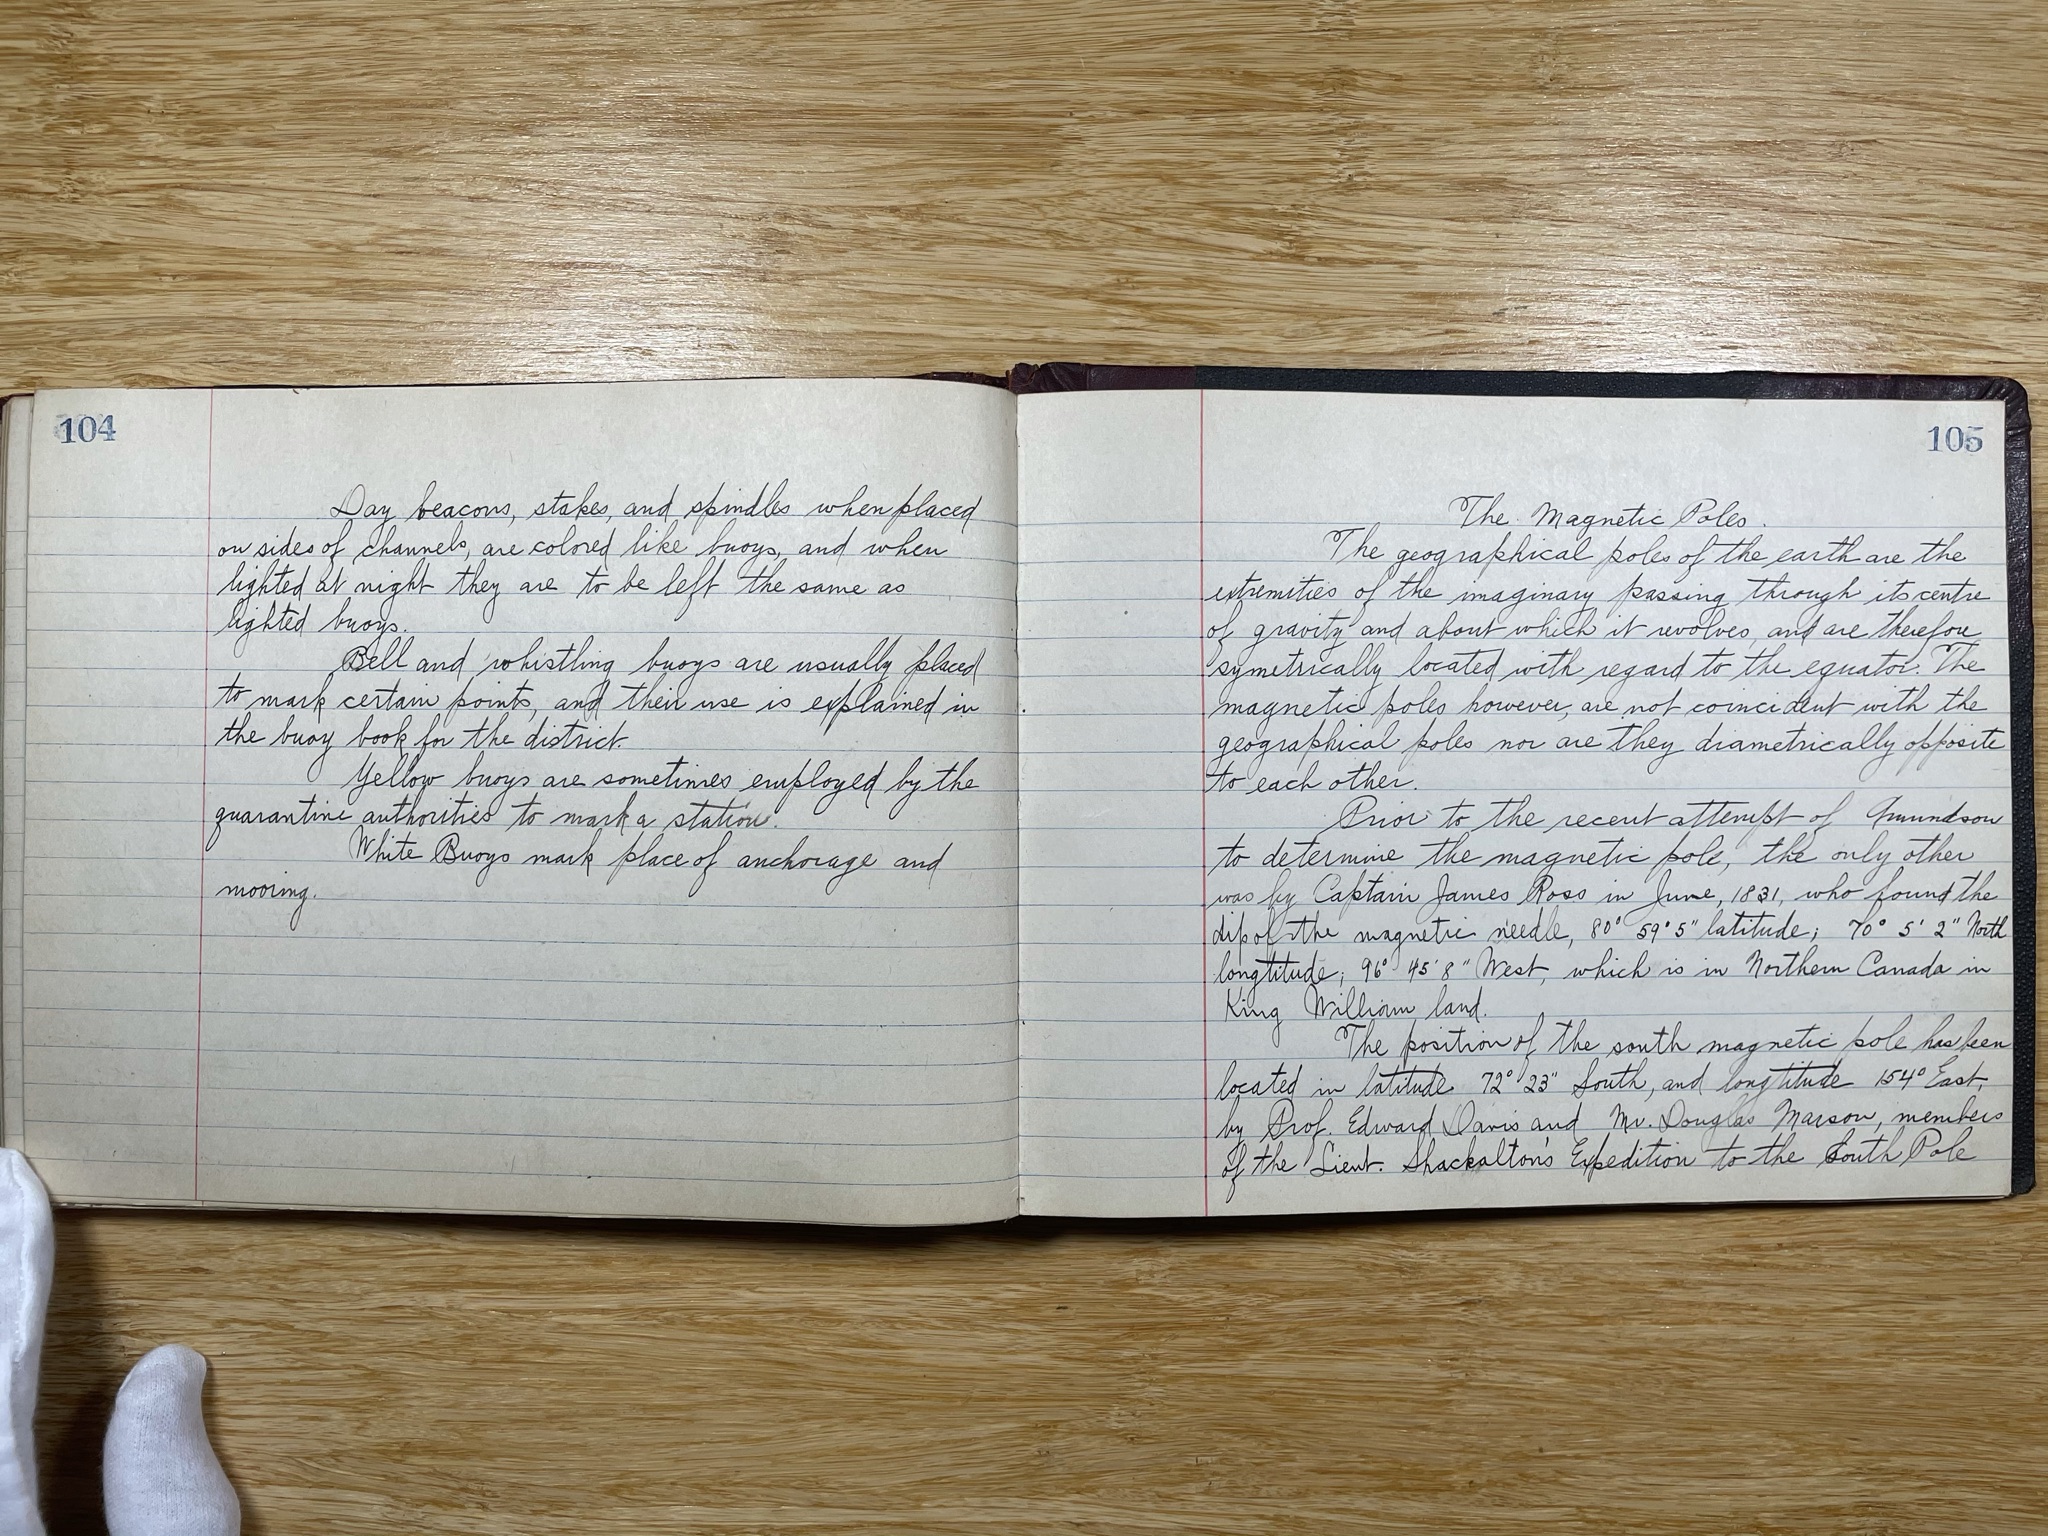 104
Day beacons, stakes, and spindles when placed
on sides of channels, are colored like buoys, and when
lighted at night they are to be left the same as
lighted buoys.
Bell and whistling buoys are usually placed
to mark certain points, and their use is explained in
the buoy book for the district.
Yellow buoys are sometimes employed by the
quarantine authorities to mark a station.
White Buoys mark place of anchorage and
mooring.
105
The Magnetic Poles.
The geographical poles of the earth are the
extremities of the imaginary passing through its centre
of gravity and about which it revolves, and are therefore
symetrically located with regard to the equator. The
magnetic poles however, are not coincident with the
geographical poles nor are they diametrically opposite
to each other.
Prior to the recent attempt of Amundson
to determine the magnetic pole, the only other
was by Captain James Ross in June, 1831, who found the
dip of the magnetic needle, 80° 59° 5" latitude; 70° 5' 2" North
longtitude; 96° 45' 8" West, which is in Northern Canada in
King William land.
The position of the south magnetic pole has been
located in latitude 72° 23" South, and longtitude 154° East,
by Prof. Edward Davis and Mr. Douglas Marson, members
of the Lieut. Shackalton's Expedition to the South Pole